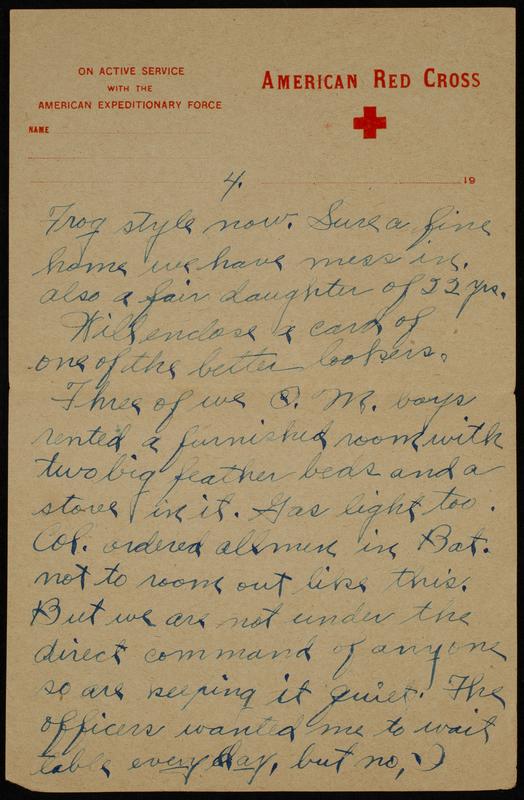 ON ACTIVE SERVICE
WITH THE
AMERICAN EXPEDITIONARY FORCE
AMERICAN RED CROSS
NAME
4.
19
Frog style now. Sure a fine
home we have mess in.
also a fair daughter of 22 yrs.
Will enclose a card of
one of the better lookers.
Three of we Q. M. boys
rented a furnished room with
two big feather beds and a
stove in it. Gas light too.
Col. ordered all men in Bat.
not to room out like this.
But we are not under the
direct command of anyone
so are keeping it quiet. The
officers wanted me to wait
table every day, but no, I